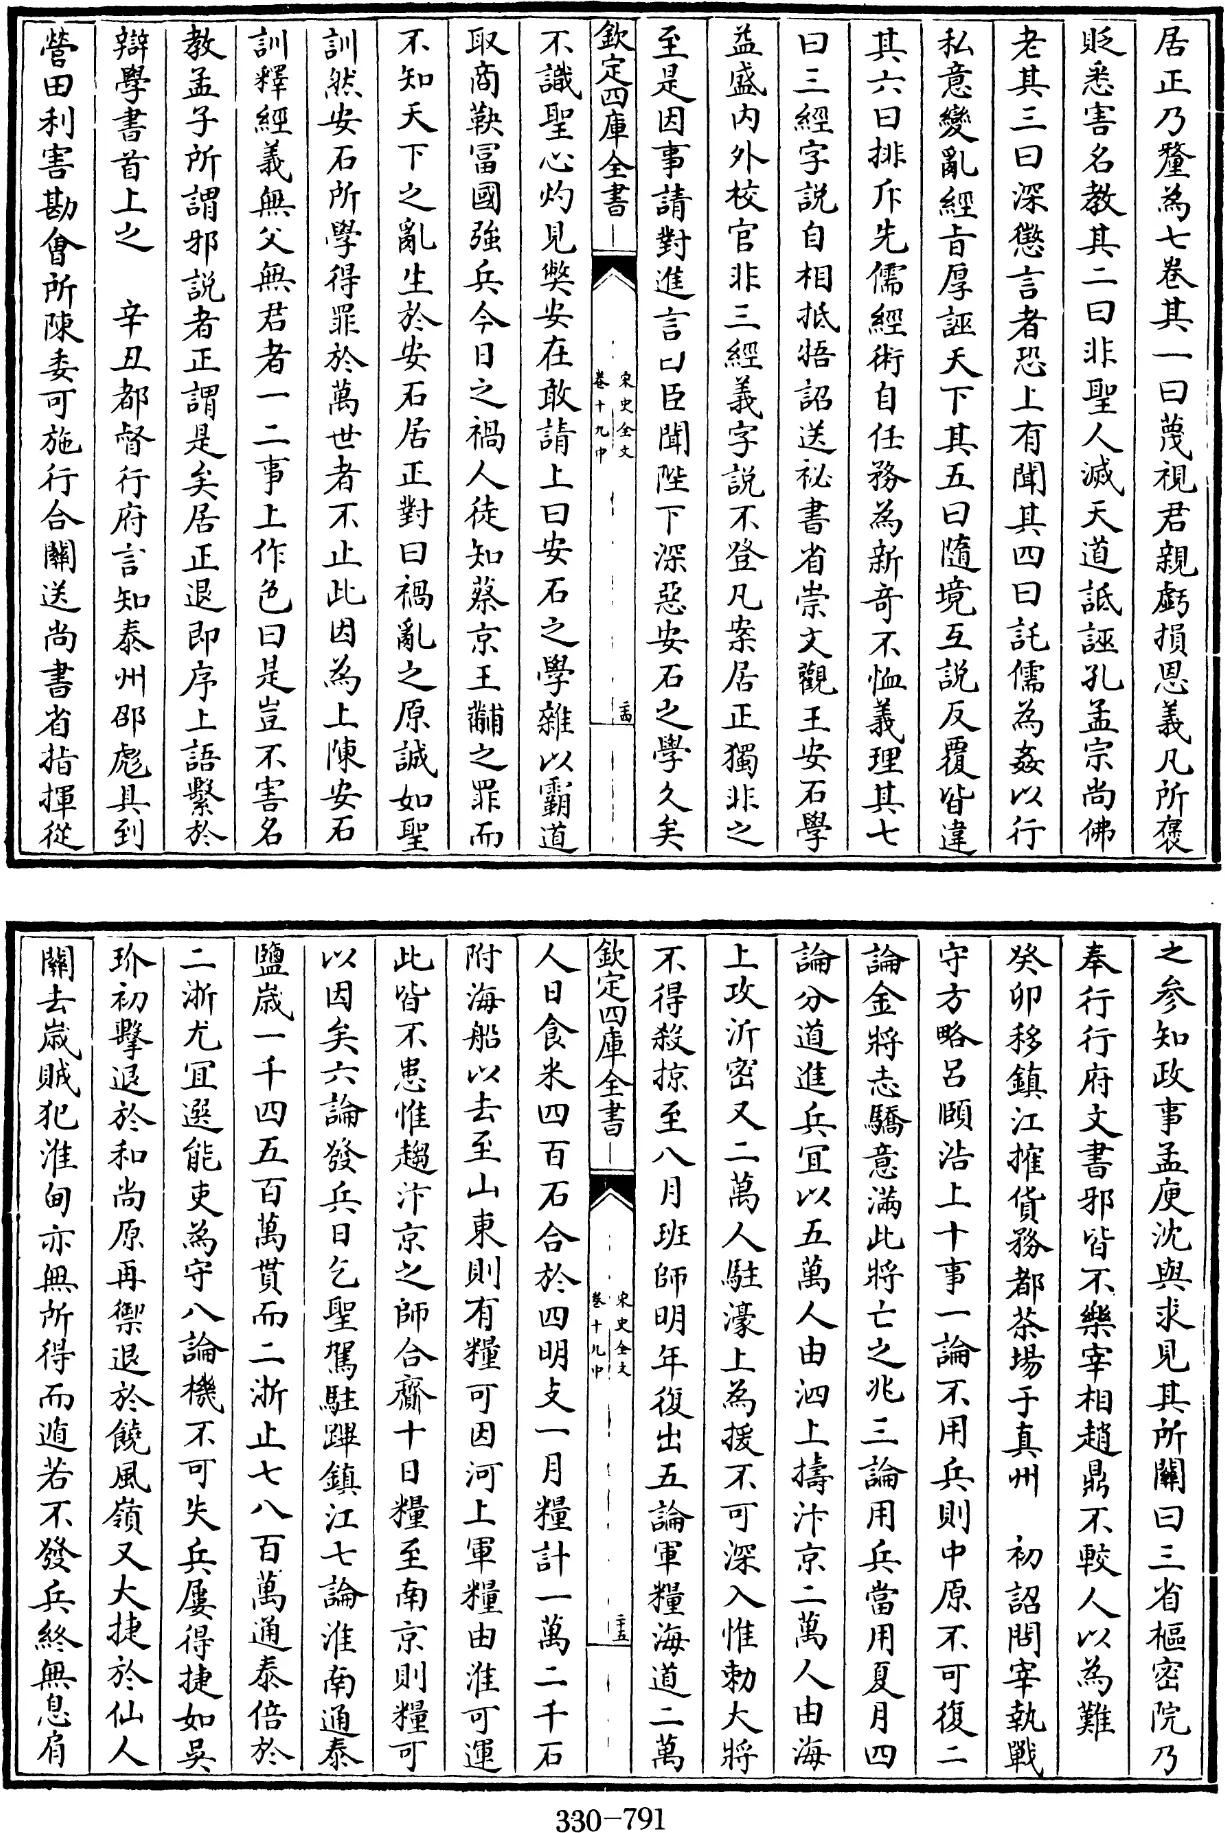 居正乃釐為七卷其一曰蔑視君親虧損恩義凡所褒
貶悉害名教其二曰非聖人滅天道詆誣孔孟宗尚佛
老其三曰深懲言者恐上有聞其四曰託儒為姦以行
私意變亂經旨厚誣天下其五曰隨境互説反覆皆違
其六曰排斥先儒經術自任務為新奇不恤義理其七
曰三經字説自相抵牾詔送祕書省崇文觀王安石學
益盛内外校官非三經義字説不登凡案居正獨非之
至是因事請對進言曰臣聞陛下深惡安石之學久矣
欽定四庫全書
宋史全文
卷十九中
二十四
不識聖心灼見弊安在敢請上曰安石之學雜以霸道
取商鞅富國強兵今日之禍人徒知蔡京王黼之罪而
不知天下之亂生於安石居正對曰禍亂之原誠如聖
訓然安石所學得罪於萬世者不止此因為上陳安石
訓釋經義無父無君者一二事上作色曰是豈不害名
教孟子所謂邪説者正謂是矣居正退即序上語繫於
辯學書首上之　辛丑都督行府言知泰州邵彪具到
營田利害勘會所陳委可施行合關送尚書省指揮從
之參知政事孟庾沈與求見其所關曰三省樞密院乃
奉行行府文書邪皆不樂宰相趙鼎不較人以為難
癸卯移鎮江搉貨務都茶場于真州　初詔問宰執戰
守方略呂頤浩上十事一論不用兵則中原不可復二
論金將志驕意滿此將亡之兆三論用兵當用夏月四
論分道進兵宜以五萬人由泗上擣汴京二萬人由海
上攻沂密又二萬人駐濠上為援不可深入惟勅大將
不得殺掠至八月班師明年復出五論軍糧海道二萬
欽定四庫全書
宋史全文
卷十九中
二十五
人日食米四百石合於四明支一月糧計一萬二千石
附海船以去至山東則有糧可因河上軍糧由淮可運
此皆不患惟趨汴京之師合齎十日糧至南京則糧可
以因矣六論發兵日乞聖駕駐蹕鎮江七論淮南通泰
鹽歲一千四五百萬貫而二浙止七八百萬通泰倍於
二浙尤宜選能吏為守八論機不可失兵屢得捷如吳
玠初擊退於和尚原再禦退於饒風嶺又大捷於仙人
關去歲賊犯淮甸亦無所得而遁若不發兵終無息肩
330-791